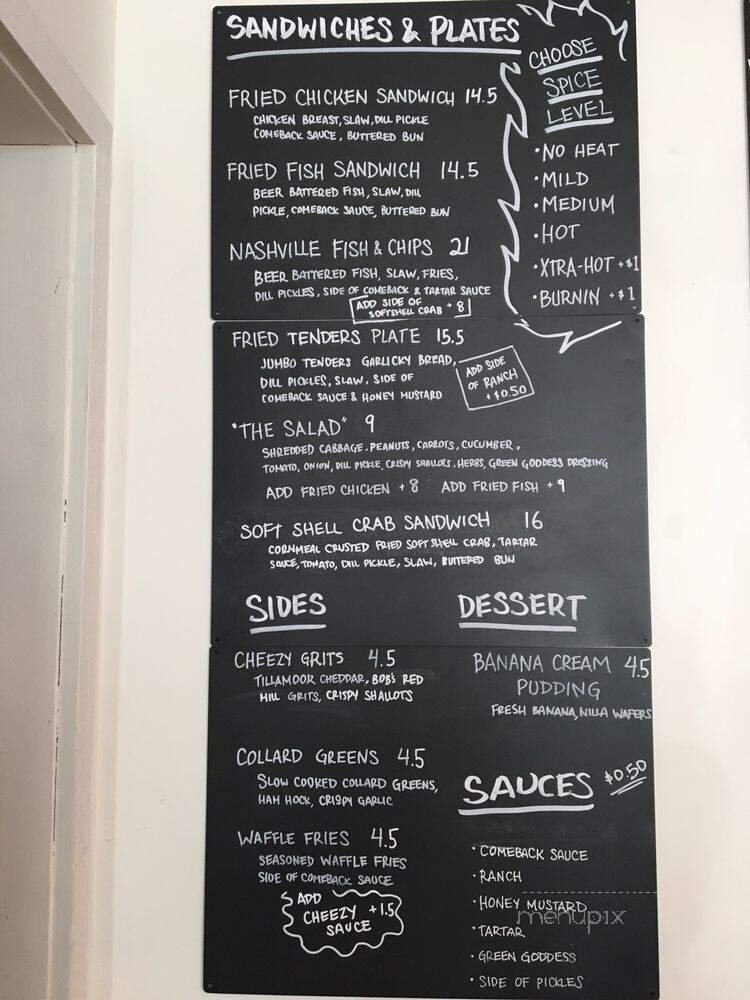 SANDWICHES & PLATES
CHOOSE
SPICE
LEVEL
• NO HEAT
• MILD
• MEDIUM
• HOT
• XTRA-HOT +$1
• BURNIN +$1
FRIED CHICKEN SANDWICH 14.5
CHICKEN BREAST, SLAW, DILL PICKLE
COMEBACK SAUCE, BUTTERED BUN
FRIED FISH SANDWICH 14.5
BEER BATTERED FISH, SLAW, DILL
PICKLE, COMEBACK SAUCE, BUTTERED BUN
NASHVILLE FISH & CHIPS 21
BEER BATTERED FISH, SLAW, FRIES,
DILL PICKLES, SIDE OF COMEBACK & TARTAR SAUCE
ADD SIDE OF
SOFTSHELL CRAB +8
FRIED TENDERS PLATE 15.5
JUMBO TENDERS GARLICKY BREAD,
DILL PICKLES, SLAW, SIDE OF
COMEBACK SAUCE & HONEY MUSTARD
ADD SIDE
OF RANCH
+$0.50
"THE SALAD" 9
SHREDDED CABBAGE, PEANUTS, CARROTS, CUCUMBER,
TOMATO, ONION, DILL PICKLE, CRISPY SHALLOTS, HERBS, GREEN GODDESS DRESSING
ADD FRIED CHICKEN +8 ADD FRIED FISH +9
SOFT SHELL CRAB SANDWICH 16
CORNMEAL CRUSTED FRIED SOFT SHELL CRAB, TARTAR
SAUCE, TOMATO, DILL PICKLE, SLAW, BUTTERED BUN
SIDES
CHEEZY GRITS 4.5
TILLAMOOK CHEDDAR, BOB'S RED
MILL GRITS, CRISPY SHALLOTS
COLLARD GREENS 4.5
SLOW COOKED COLLARD GREENS,
HAM HOCK, CRISPY GARLIC
WAFFLE FRIES 4.5
SEASONED WAFFLE FRIES
SIDE OF COMEBACK SAUCE
ADD
CHEEZY +1.5
SAUCE
DESSERT
BANANA CREAM 4.5
PUDDING
FRESH BANANA, NILLA WAFERS
SAUCES $0.50
• COMEBACK SAUCE
• RANCH
• HONEY MUSTARD
• TARTAR
• GREEN GODDESS
• SIDE OF PICKLES
menupix